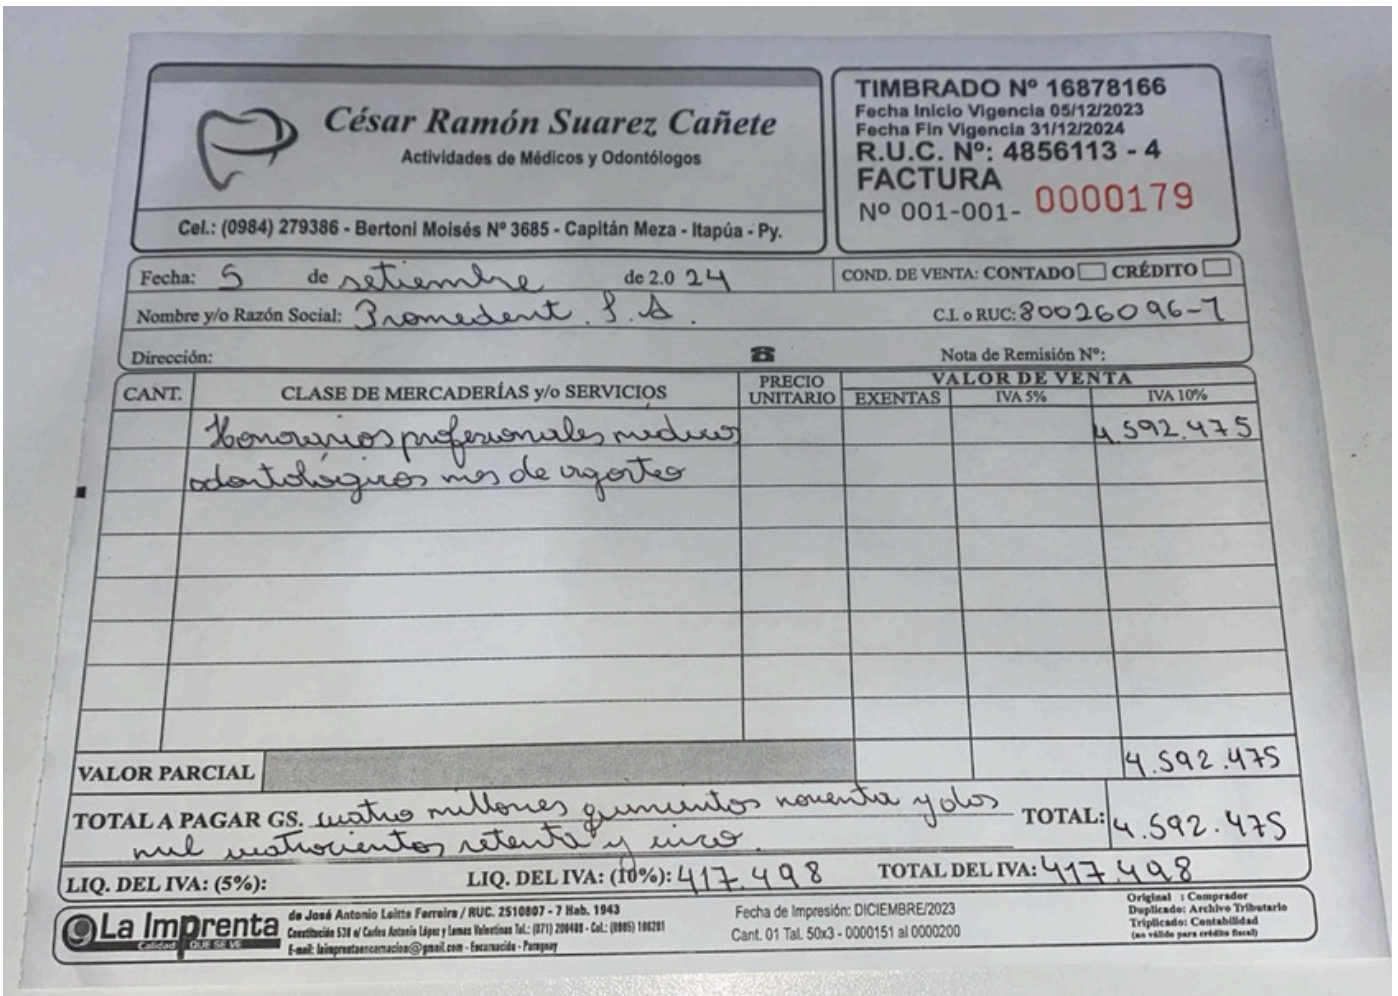 César Ramón Suarez Cañete
Actividades de Médicos y Odontólogos
Cel.: (0984) 279386 - Bertoni Moisés Nº 3685 - Capitán Meza - Itapúa - Py.
TIMBRADO Nº 16878166
Fecha Inicio Vigencia 05/12/2023
Fecha Fin Vigencia 31/12/2024
R.U.C. Nº: 4856113 - 4
FACTURA
Nº 001-001- 0000179
Fecha: 5 de setiembre de 2.0 24
COND. DE VENTA: CONTADO CRÉDITO
Nombre y/o Razón Social: Promedent S.A.
C.I. o RUC: 80026096-7
Dirección:
Nota de Remisión Nº:
CANT. CLASE DE MERCADERÍAS y/o SERVICIOS PRECIO UNITARIO VALOR DE VENTA
EXENTAS IVA 5% IVA 10%
Honorarios profesionales medicos 4.592.475
odontológicos mes de agosto
VALOR PARCIAL 4.592.475
TOTAL A PAGAR GS. cuatro millones quinientos noventa y dos
mil cuatrocientos setenta y cinco.
TOTAL: 4.592.475
LIQ. DEL IVA: (5%): LIQ. DEL IVA: (10%): 417.498 TOTAL DEL IVA: 417.498
La Imprenta
Calidad QUE SE VE
de José Antonio Leitte Ferreira / RUC. 2510807 - 7 Hab. 1943
Constitución 538 e/ Carlos Antonio López y Lomas Valentinas Tel.: (071) 208488 - Cel.: (0985) 186281
E-mail: laimprentaencarnacion@gmail.com - Encarnación - Paraguay
Fecha de Impresión: DICIEMBRE/2023
Cant. 01 Tal. 50x3 - 0000151 al 0000200
Original : Comprador
Duplicado: Archivo Tributario
Triplicado: Contabilidad
(no válido para crédito fiscal)